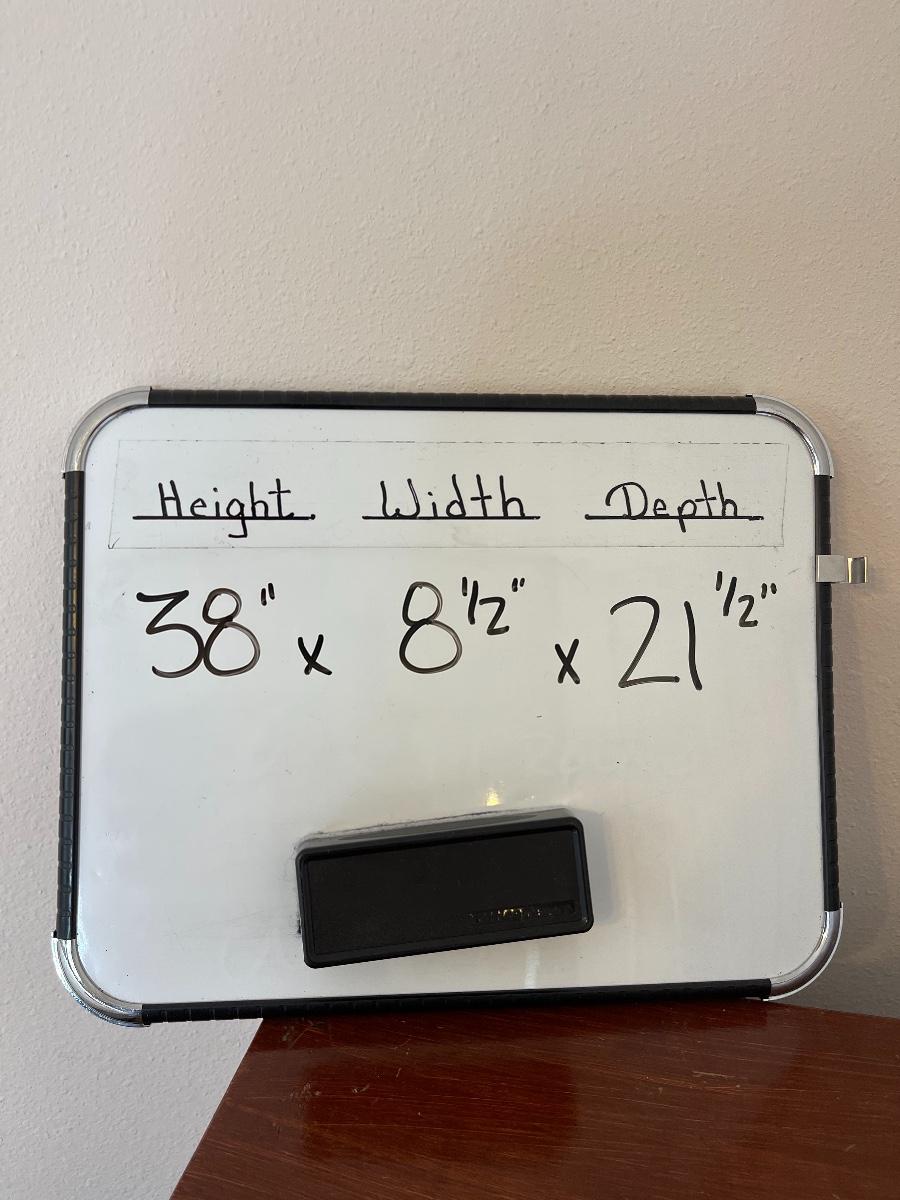 Height Width Depth
38" x 8 1/2" x 21 1/2"